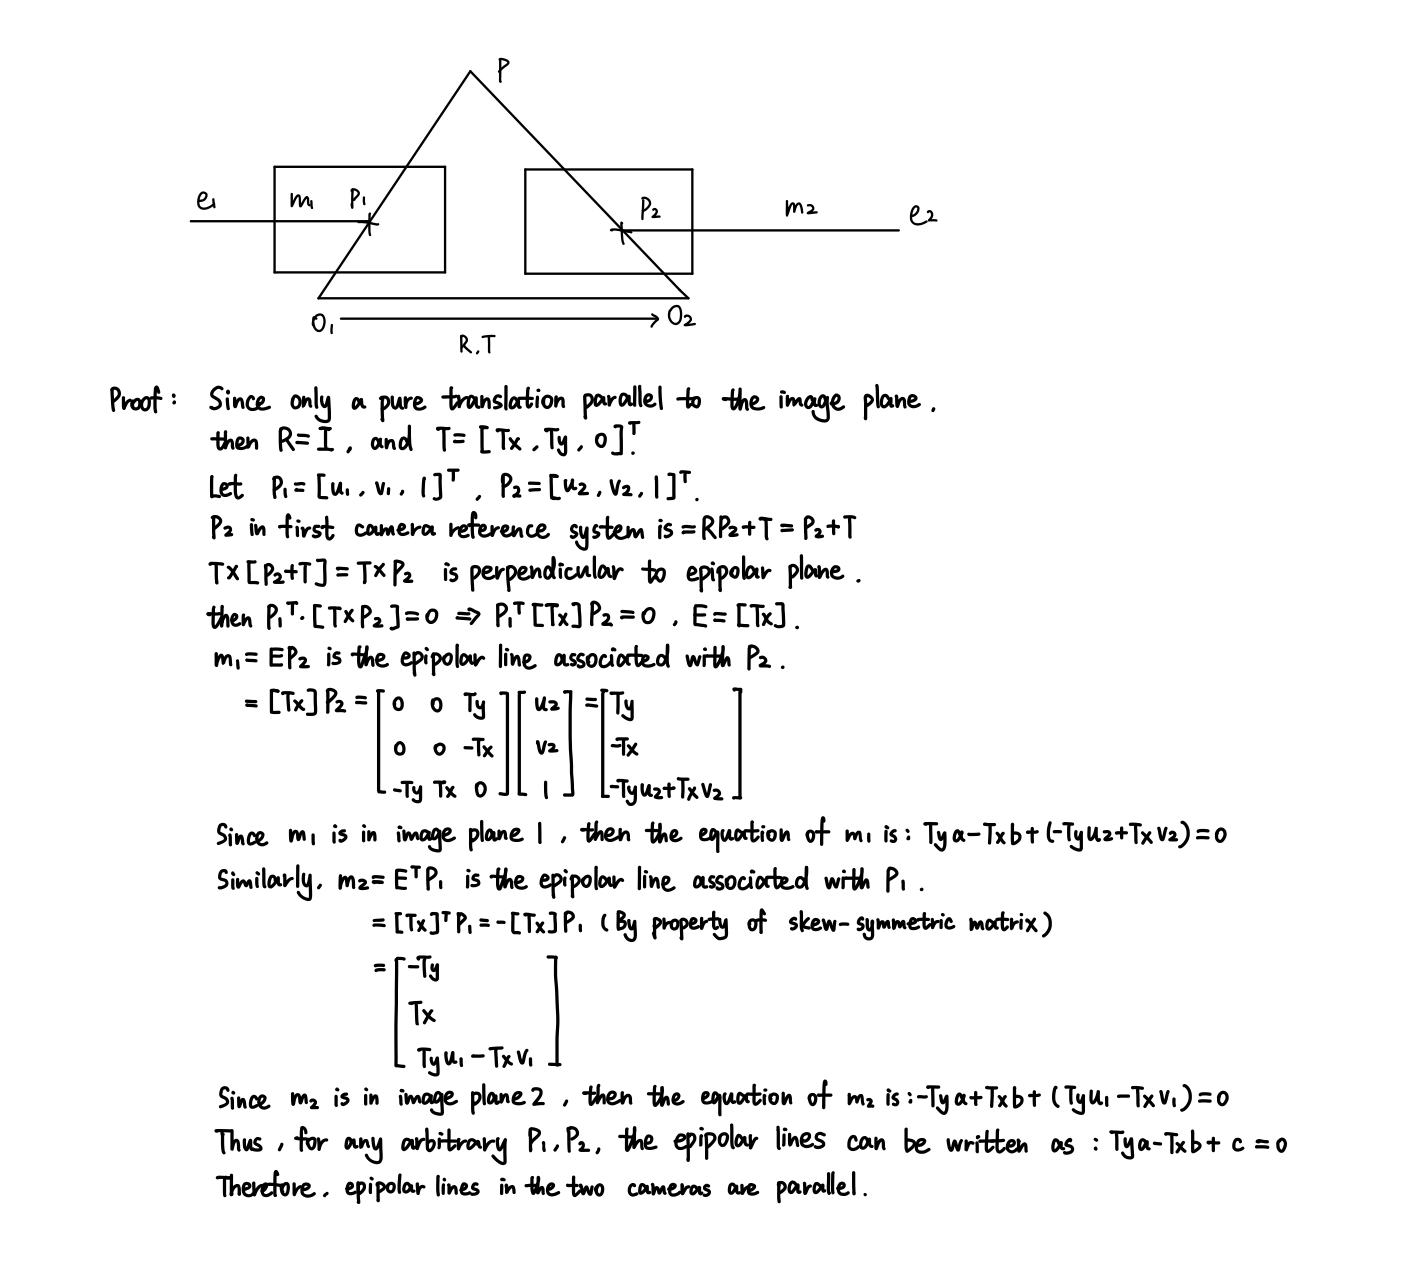 P
e1 m1 P1 P2 m2 e2
O1 O2
R.T
Proof: Since only a pure translation parallel to the image plane.
then R=I, and T=[Tx, Ty, 0]ᵀ.
Let P1=[u1, v1, 1]ᵀ, P2=[u2, v2, 1]ᵀ.
P2 in first camera reference system is =RP2+T=P2+T
T×[P2+T]=T×P2 is perpendicular to epipolar plane.
then P1ᵀ·[T×P2]=0 ⇒ P1ᵀ[Tx]P2=0, E=[Tx].
m1=EP2 is the epipolar line associated with P2.
= [Tx]P2 = [0 0 Ty] [u2] = [Ty]
[0 0 -Tx] [v2] [-Tx]
[-Ty Tx 0] [1] [-Tyu2+Txv2]
Since m1 is in image plane 1, then the equation of m1 is: Tya-Txb+(-Tyu2+Txv2)=0
Similarly, m2=EᵀP1 is the epipolar line associated with P1.
= [Tx]ᵀP1=-[Tx]P1 (By property of skew-symmetric matrix)
= [-Ty]
[Tx]
[Tyu1-Txv1]
Since m2 is in image plane 2, then the equation of m2 is:-Tya+Txb+(Tyu1-Txv1)=0
Thus, for any arbitrary P1,P2, the epipolar lines can be written as: Tya-Txb+c=0
Therefore, epipolar lines in the two cameras are parallel.